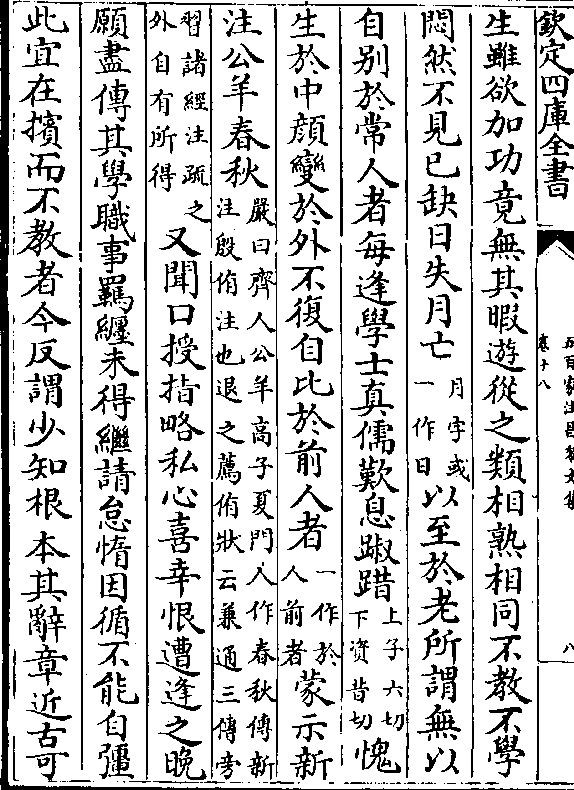 欽定四庫全書
卷十八
八
生雖欲加功竟無其暇遊從之類相熟相同不教不學
悶然不見已缺日失月亡月字或一作日以至於老所謂無以
自别於常人者每逢學士真儒歎息踧踖上子六切下资昔切愧
生於中顔變於外不復自比於前人者一作於人前者蒙示新
注公羊春秋嚴曰齊人公羊高子夏門人作春秋傳新注殷侑注也退之薦侑狀云兼通三傳旁
習諸經注疏之外自有所得又聞口授指略私心喜幸恨遭逢之晚
願盡傳其學職事羈纏未得繼請怠惰因循不能自彊
此宜在擯而不教者今反謂少知根本其辭章近古可